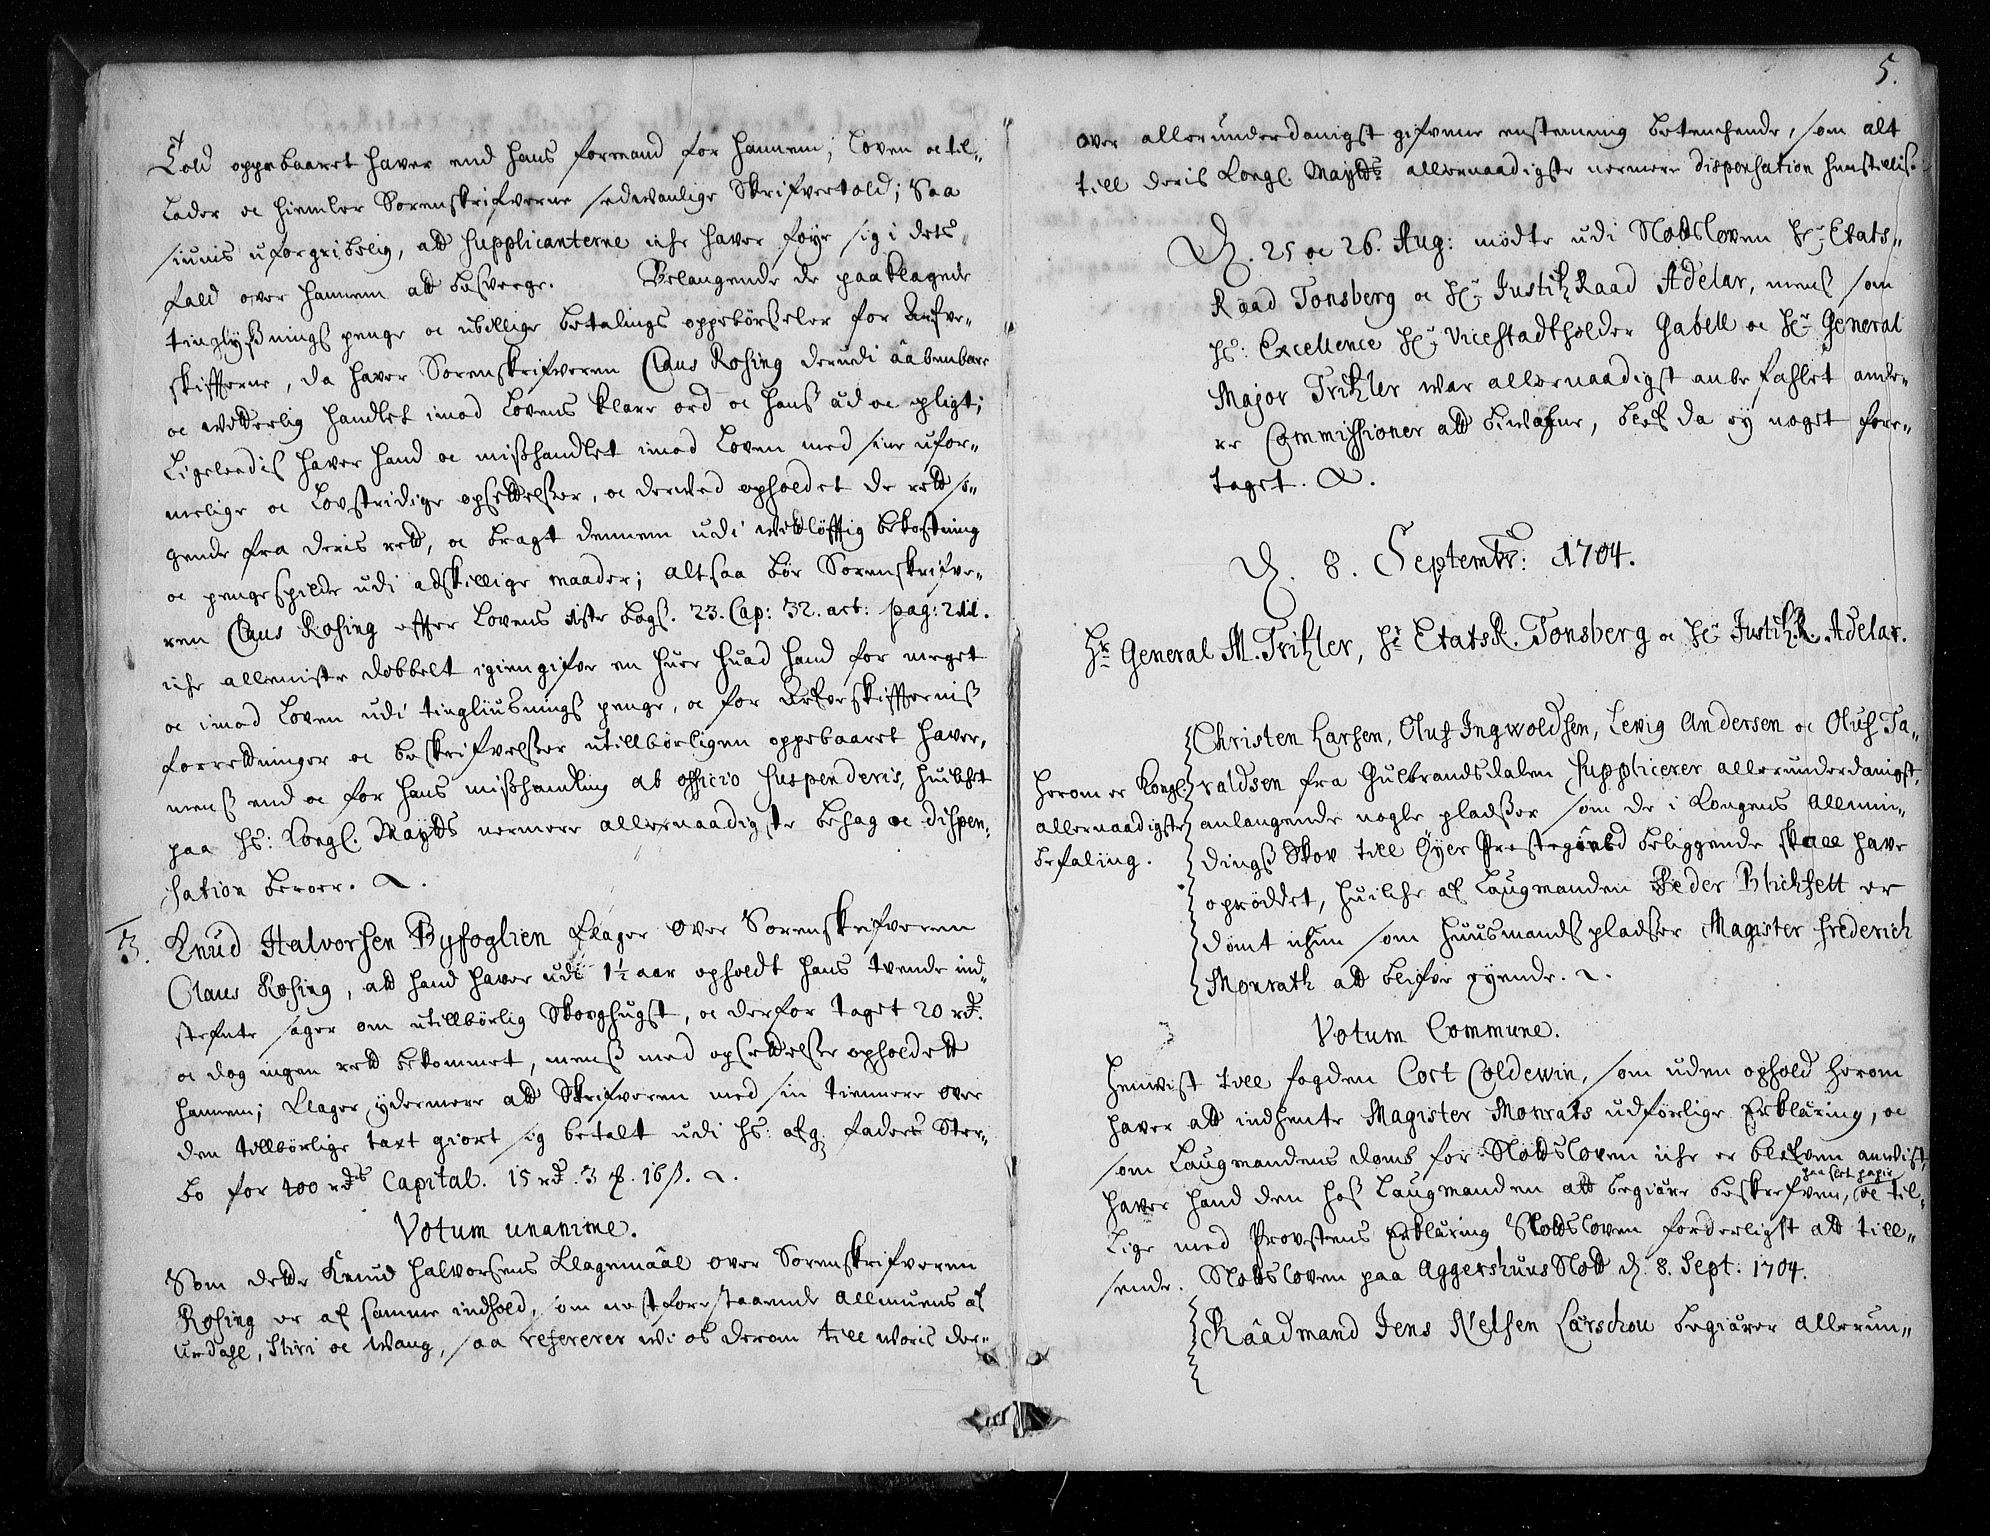 Told oppebaaret haver end hans formand for hannem; Loven oc til-
lader oc hiemler Sorenskrifverne sedvanlige Skrifvertold; Saa
siunis uforgribelig, att Supplicanterne iche haver føye sig i dets
fald over hannem att besverge. Belangende de paaklagede
tinglysnings penge oc ubillige betalings oppebørseler for Arfve-
skiffterne, da haver Sorenskrifveren Claus Rosing derudi aabenbare
oc vitterlig handlet imod Lovens klare ord oc hans æd oc pligt;
Ligeleedis haver hand oc mishandlet imod Loven med sine ufor-
melige oc Lovstridige opsettelser, oc derved opholdet de rettsø-
gende fra deris rett, oc bragt dennem udi vittløfftig bekostning
oc pengespilde udi adskillige maader; altsaa bør Sorenskrifve-
ren Claus Rosing effter Lovens 1ste bogs. 23. Cap: 32. art: pag:
iche allemiste dobbelt igiengifve en huer huad hand for meget
oc imod Loven udi tingliusnings penge, oc for Arfveskiffternis
forretninger oc beskrifvelser utilbørligen oppebaaret haver,
mens end oc for hans mishandling ab officio suspenderis, huilchet
paa Hs: Kongl. Maytts nermere allernaadigste behag oc dispen-
sation beroer.
3. Knud Halvorsen Byfoglien klager over Sorenskrifveren
Claus Rosing, att hand haver udi 1½ aar opholdt hans tvende ind-
stefnte sager om utillbørlig Skovghugst, oc derfor taget 20 rd.
oc dog ingen rett bekommet, mens med opsettelse opholdett
hannem; klager ydermere att Skrifveren med sin tiennere over
den tillbørlige taxt giort sig betalt udi Hs: afg. faders Ster-
bo for 400 rds Capital. 15 rd. 3 . 16 s.
Votum unanime.
Som dette Knud Halvorsens klagemaal over Sorenskrifveren
Rosing er af samme indhold, som nest forestaaende allmuens af
Urdahl, Sliri oc Wang, saa refererer wi os derom till woris der-
5.
over allerunderdanigst gifvene enstemmig betenchende, som alt
till deris Kongl. Maytts allernaadigste nermere dispensation henstillis.
D. 25 oc 26. Aug: mødte udi Slottsloven Hr. Etats-
Raad Tonsberg oc Hr. Justitz Raad Adelar, mens som
Hs: Excellence Hr. Vicestadtholder Gabell oc Hr. General
Major Tritzler war allernaadigst anbefahlet ande-
re Commissioner att biwohne, blef da ey noget fore-
taget.
D. 8. Septembr: 1704.
Hr. General M. Tritzler, Hr. Etats R. Tonsberg oc Hr. Justitz R. Adelar.
Christen Larsen, Oluf Ingwoldsen, Lewig Andersen oc Oluf Ta-
raldsen fra Gulbrandsdalen Supplicerer allerunderdanigst,
anlangende nogle pladser som de i Kongens Allmin-
dings Skov till Øyer Prestegield beliggende skall have
oprøddet, huilche af Laugmanden Peder Blichfelt er
dømt ichun som huusmands pladser Magister Frederich
Monrath att blifve eyende.
Herom er Kongl.
allernaadigste
befaling.
Votum Commune.
Henvist till fogden Cort Coldewin, som uden ophold herom
haver att indhente Magister Monrats udførlige Erklæring, oc
som Laugmandens domb for Slottsloven iche er blefven anvist,
haver hand den hos Laugmanden att begiære beskrefven, paa slet papir oc til-
lige med Provstens Erklæring Slottsloven forderligst att till-
sende. Slottsloven paa Aggershuus Slott d. 8. Sept: 1704.
Raadmand Jens Nelsen Larschou begiærer allerun-